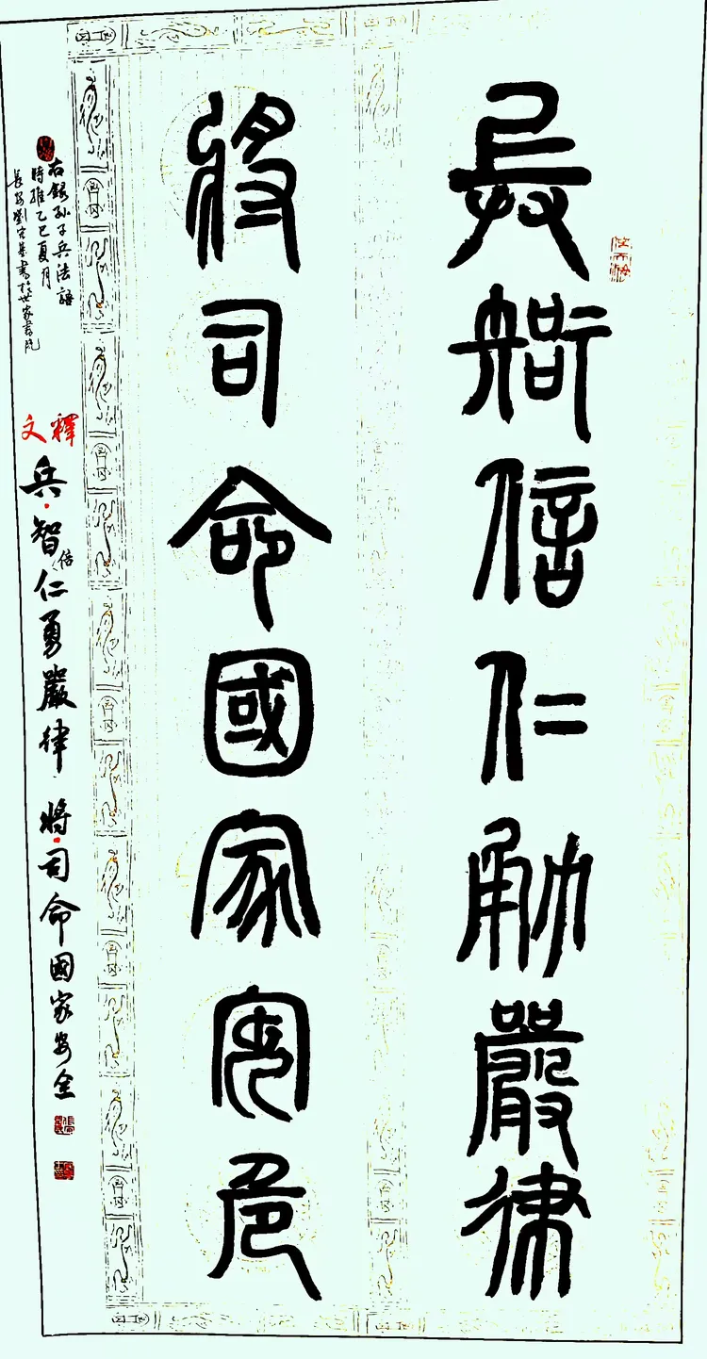 兵智信仁勇嚴律
將司命國家安危
右錄孙子兵法語
時維乙巳夏月
長安劉書於世家書院
釋文
兵·智信仁勇嚴律·將·司命國家安全